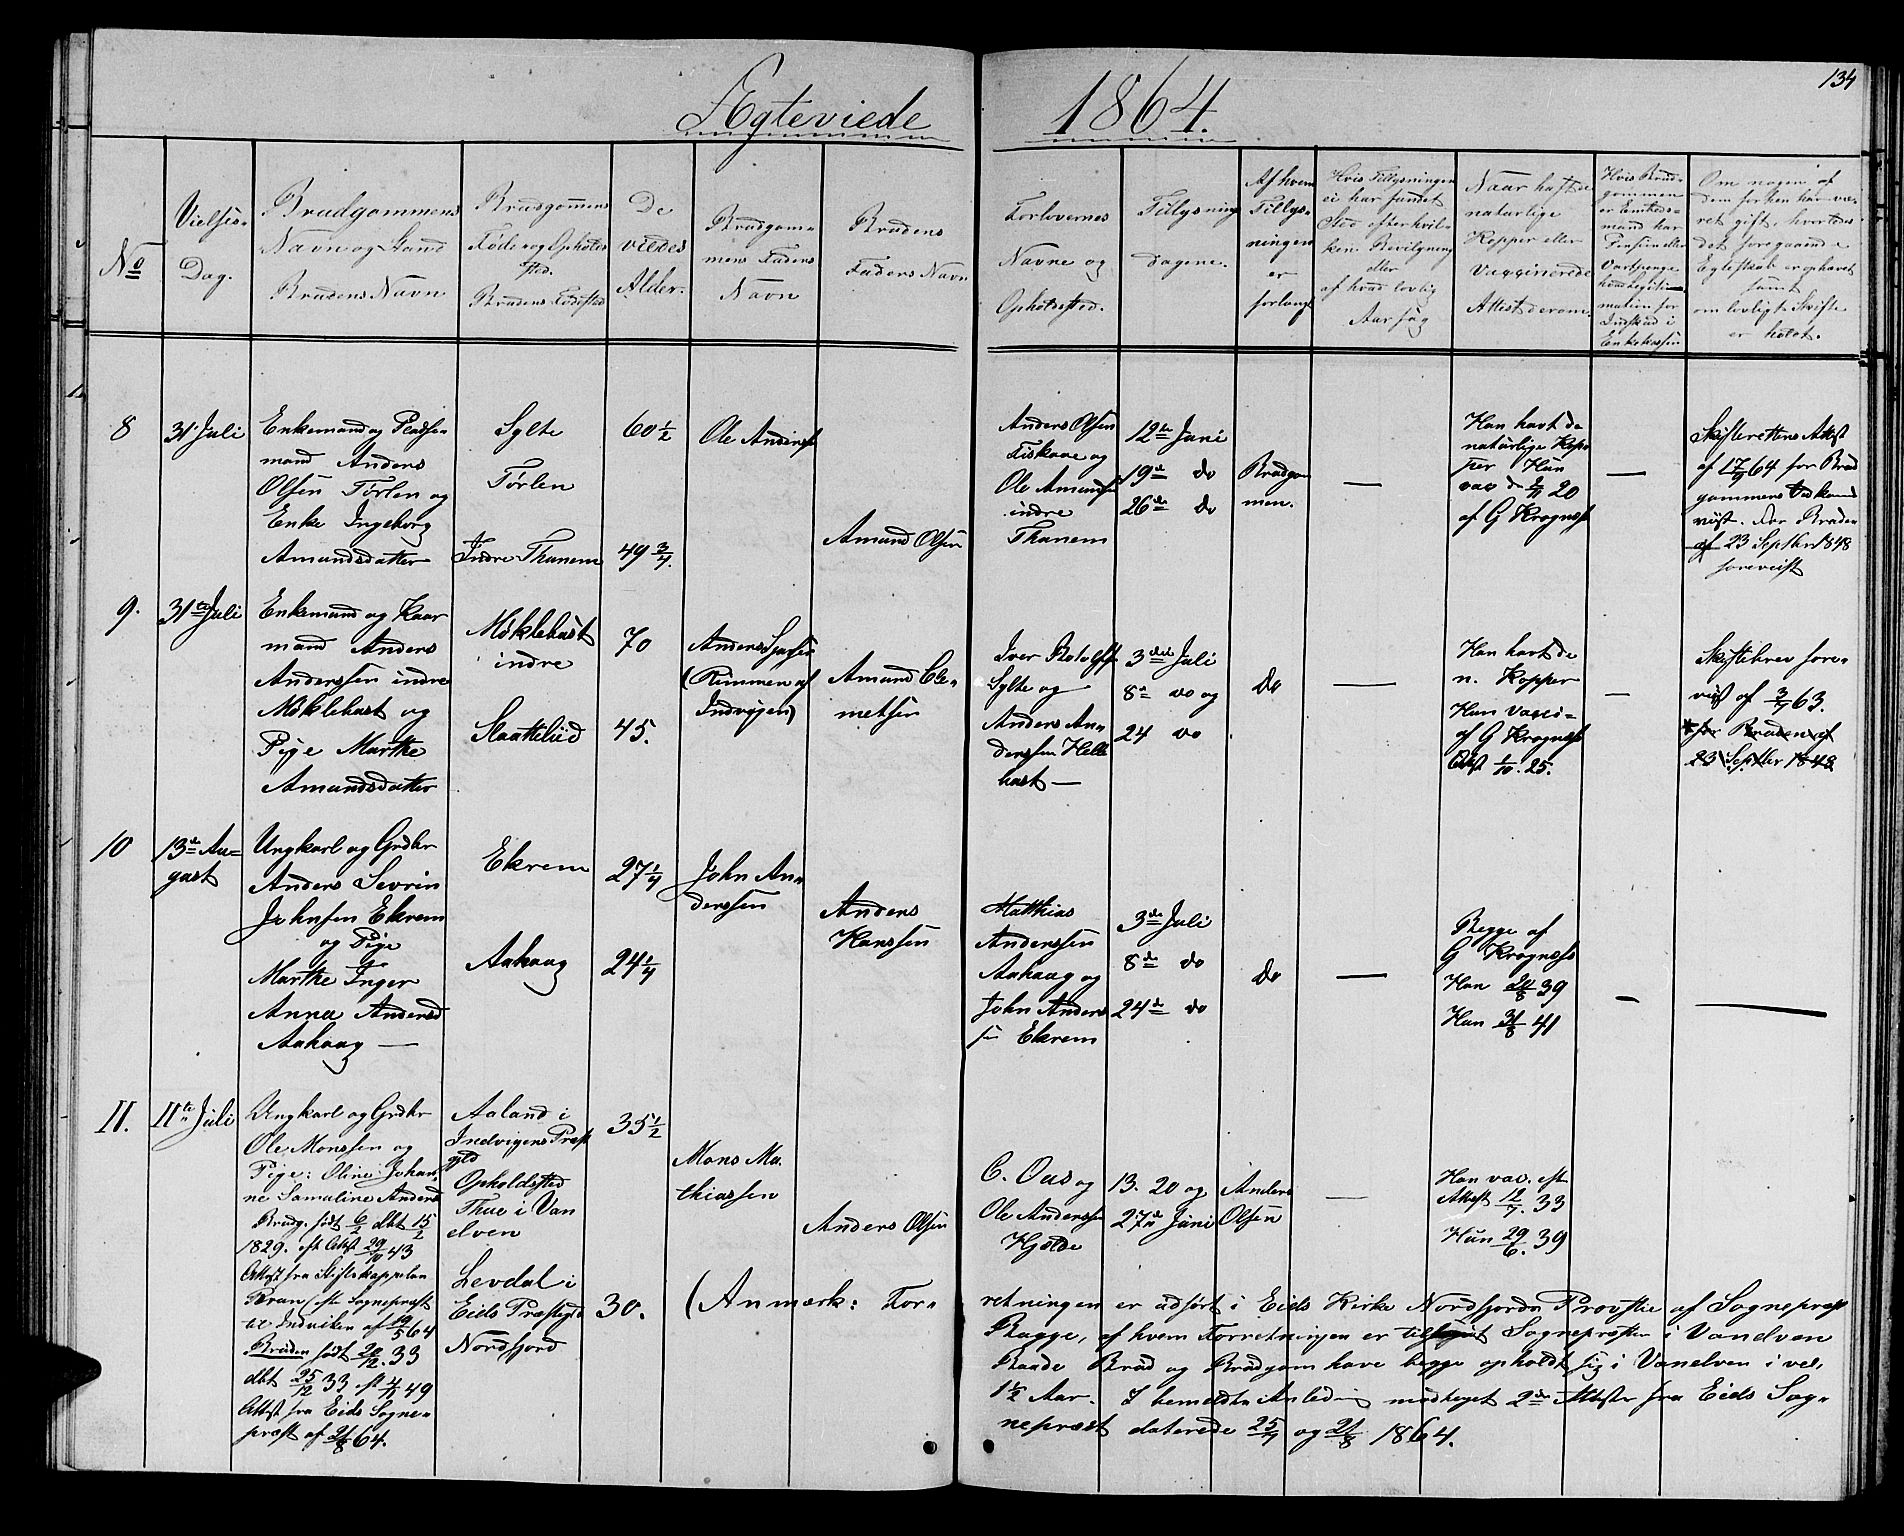 134
Ægteviede 1864.
No
Vielses-
Dag.
Brudgommens
Navn og Stand
Brudens Navn
Brudgommens
Føde og Opholds
sted.
Brudens Fødested
De
viedes
Alder.
Brudgom-
mens Faders
Navn
Brudens
Faders Navn
Forlovernes
Navne og
Opholdssted.
Tillysnings
dagene.
Af hvem
Tillys-
ningen
er
forlangt
Hvis Tillysningen
ei har fundet
Sted efter hvil-
ken Bevilgning
eller
af hvad lovlig
Aarsag
Naar havt de
naturlige
Kopper eller
vaccinerede
Attest derom.
Hvis Brud-
gommen
er Embeds-
mand har
Pension eller
Vartpenge
hans Legiti-
mation for
Indskud i
Enkekassen
Om nogen af
dem før har væ-
ret gift, hvorledes
det foregaaende
Egteskab er ophævet
samt
om lovligt Skifte
er holdt.
8
31 Juli
Enkemand og Pladse-
mand Anders
Olsen Tørlen og
Enke Ingeborg
Amundsdatter
Sylte
Tørlen
Indre Thunem
60 1/2
49 3/4.
Ole Anders
Amund Olsen
Anders Olsen
Fiskaae og
Ole Amundsen
indre
Thunem
12te Juni
19de do
26de do
Brudgom
men.
—
Han havt de
naturlige Kop-
per Hun
vac d 20
af G Krogness
—
Skifterettens Attest
af 64 for Brud
gommens Vedkom
viist. For Bruden
af 23 Septbr 1848
foreviist
9.
31te Juli
Enkemand og Kaar
mand Anders
Anderssen indre
Møklebust og
Pige Marthe
Amundsdatter
Møklebust
indre
Slaattelid
70
45.
Anders
(Rimmen af
Indvigen)
Amund Cle-
metsen
Iver Rotolfs
Sylte og
Anders An-
derssen Helle
bust —
3die Juli
8de do og
24 do
do
—
Han havt de
n. Kopper
Hun vacci-
af G Krogness
Attst 1/10. 25.
—
Skiftebrev fore-
viist af 63.
for Bruden af
23 Septbr 1848
10
13de Au-
gust
Ungkarl og Grdbr
Anders Sevrin
Johnsen Ekrem
og Pige
Marthe Inger
Anna Andersd
Aahaag —
Ekrem
Aahaag
27 1/4
24 1/4
John An-
derssen
Anders
Hanssen
Matthias
Anderssen
Aahaag og
John Anders
sen Ekrem
3die Juli
8de do
24de do
do
—
Begge af
G Krogness
Han 24/8 39
Hun 31/8 41
—
—
11.
11te Juli
Ungkarl og Grdbr
Ole Monssen og
Pige: Oline Johan-
ne Samaline Anders
Brudg. født 6/2 dbt 15/2
1829. cft Attst 29/10 43
Attest fra Stiftskappelan
Peran (eftr Sognepræst
til Indviken af 19/5 64
Bruden født 20/12. 33
dbt 25/12 33 cft 4/11 49
Attest fra Eids Sogne-
præst af 21/8 64.
Aaland i
Indvigens Præst
gjld
Opholdssted
Thue i Van
elven
Levdal i
Eids Præstegjld
Nordfjord
35 1/2
30.
Mons Ma-
thiassen
Anders Olsen
C. Oas og
Ole Anderssen
Hjelde
13. 20 og
27de Juni
Anders
Olsen
—
Han vac. eft
Attest 12/7. 33
Hun 29/6. 39
(Anmærk: For-
retningen er udført i Eids Kirke Nordfjords Provstie af Sognepræst
Bugge, af hvem Forretningen er tilføiet Sognepræsten i Vandven
Baade Brud og Brudgom have begge opholdt sig i Vanelven i vel,
1 1/2 Aar. I bemeldte Anledning modtaget 2de Attester fra Eids Sog-
nepræst daterede og 21/8 1864.